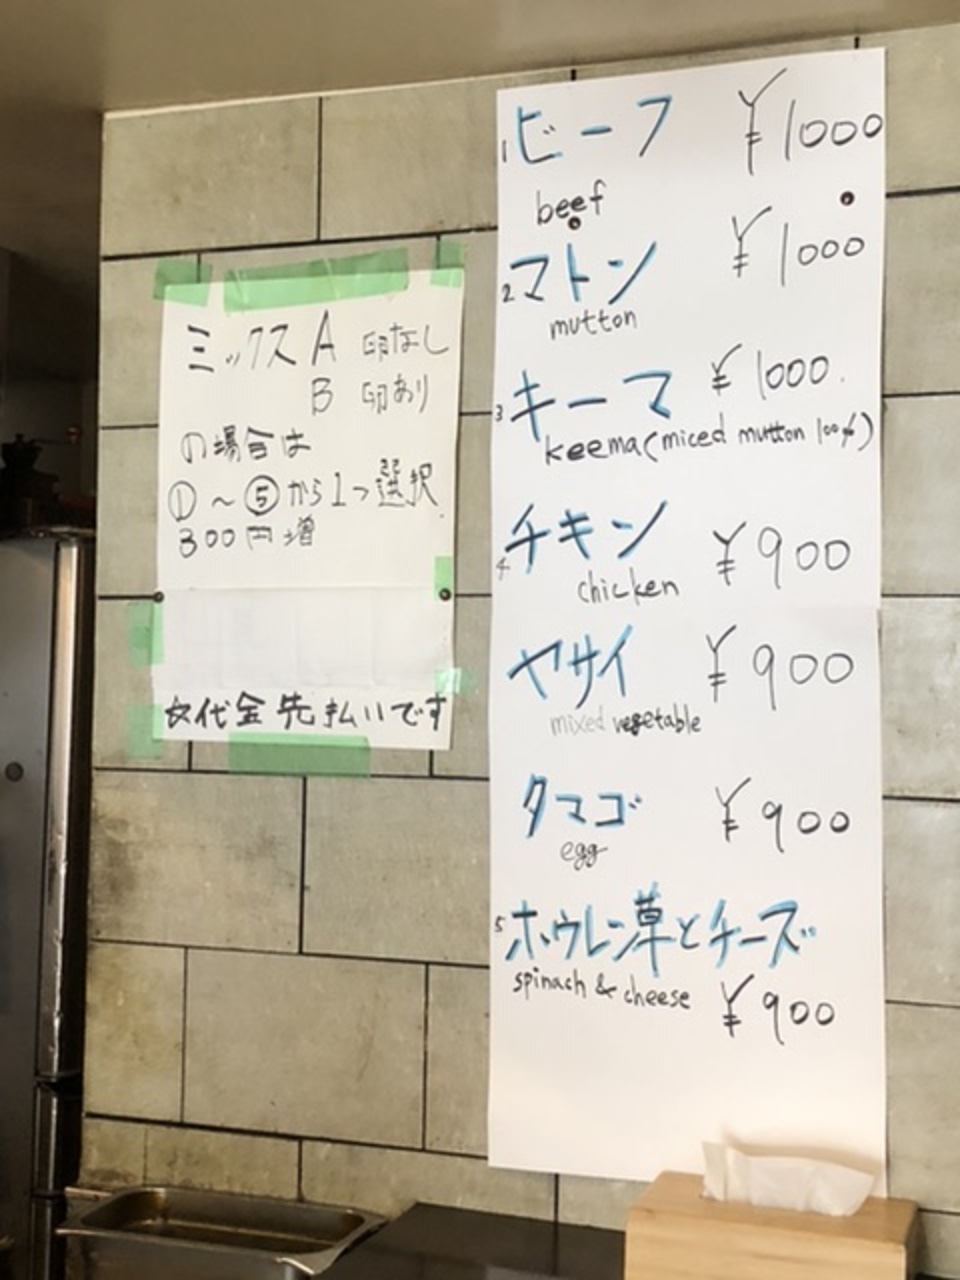 ミックス A 卵なし
B 卵あり
の場合は
①～⑤から1つ選択
300円増
代金先払いです
1 ビーフ ¥1000
beef
2 マトン ¥1000
mutton
3 キーマ ¥1000.
keema(miced mutton 100%)
4 チキン ¥900
chicken
ヤサイ ¥900
mixed vegetable
タマゴ ¥900
egg
5 ホウレン草とチーズ
spinach & cheese ¥900